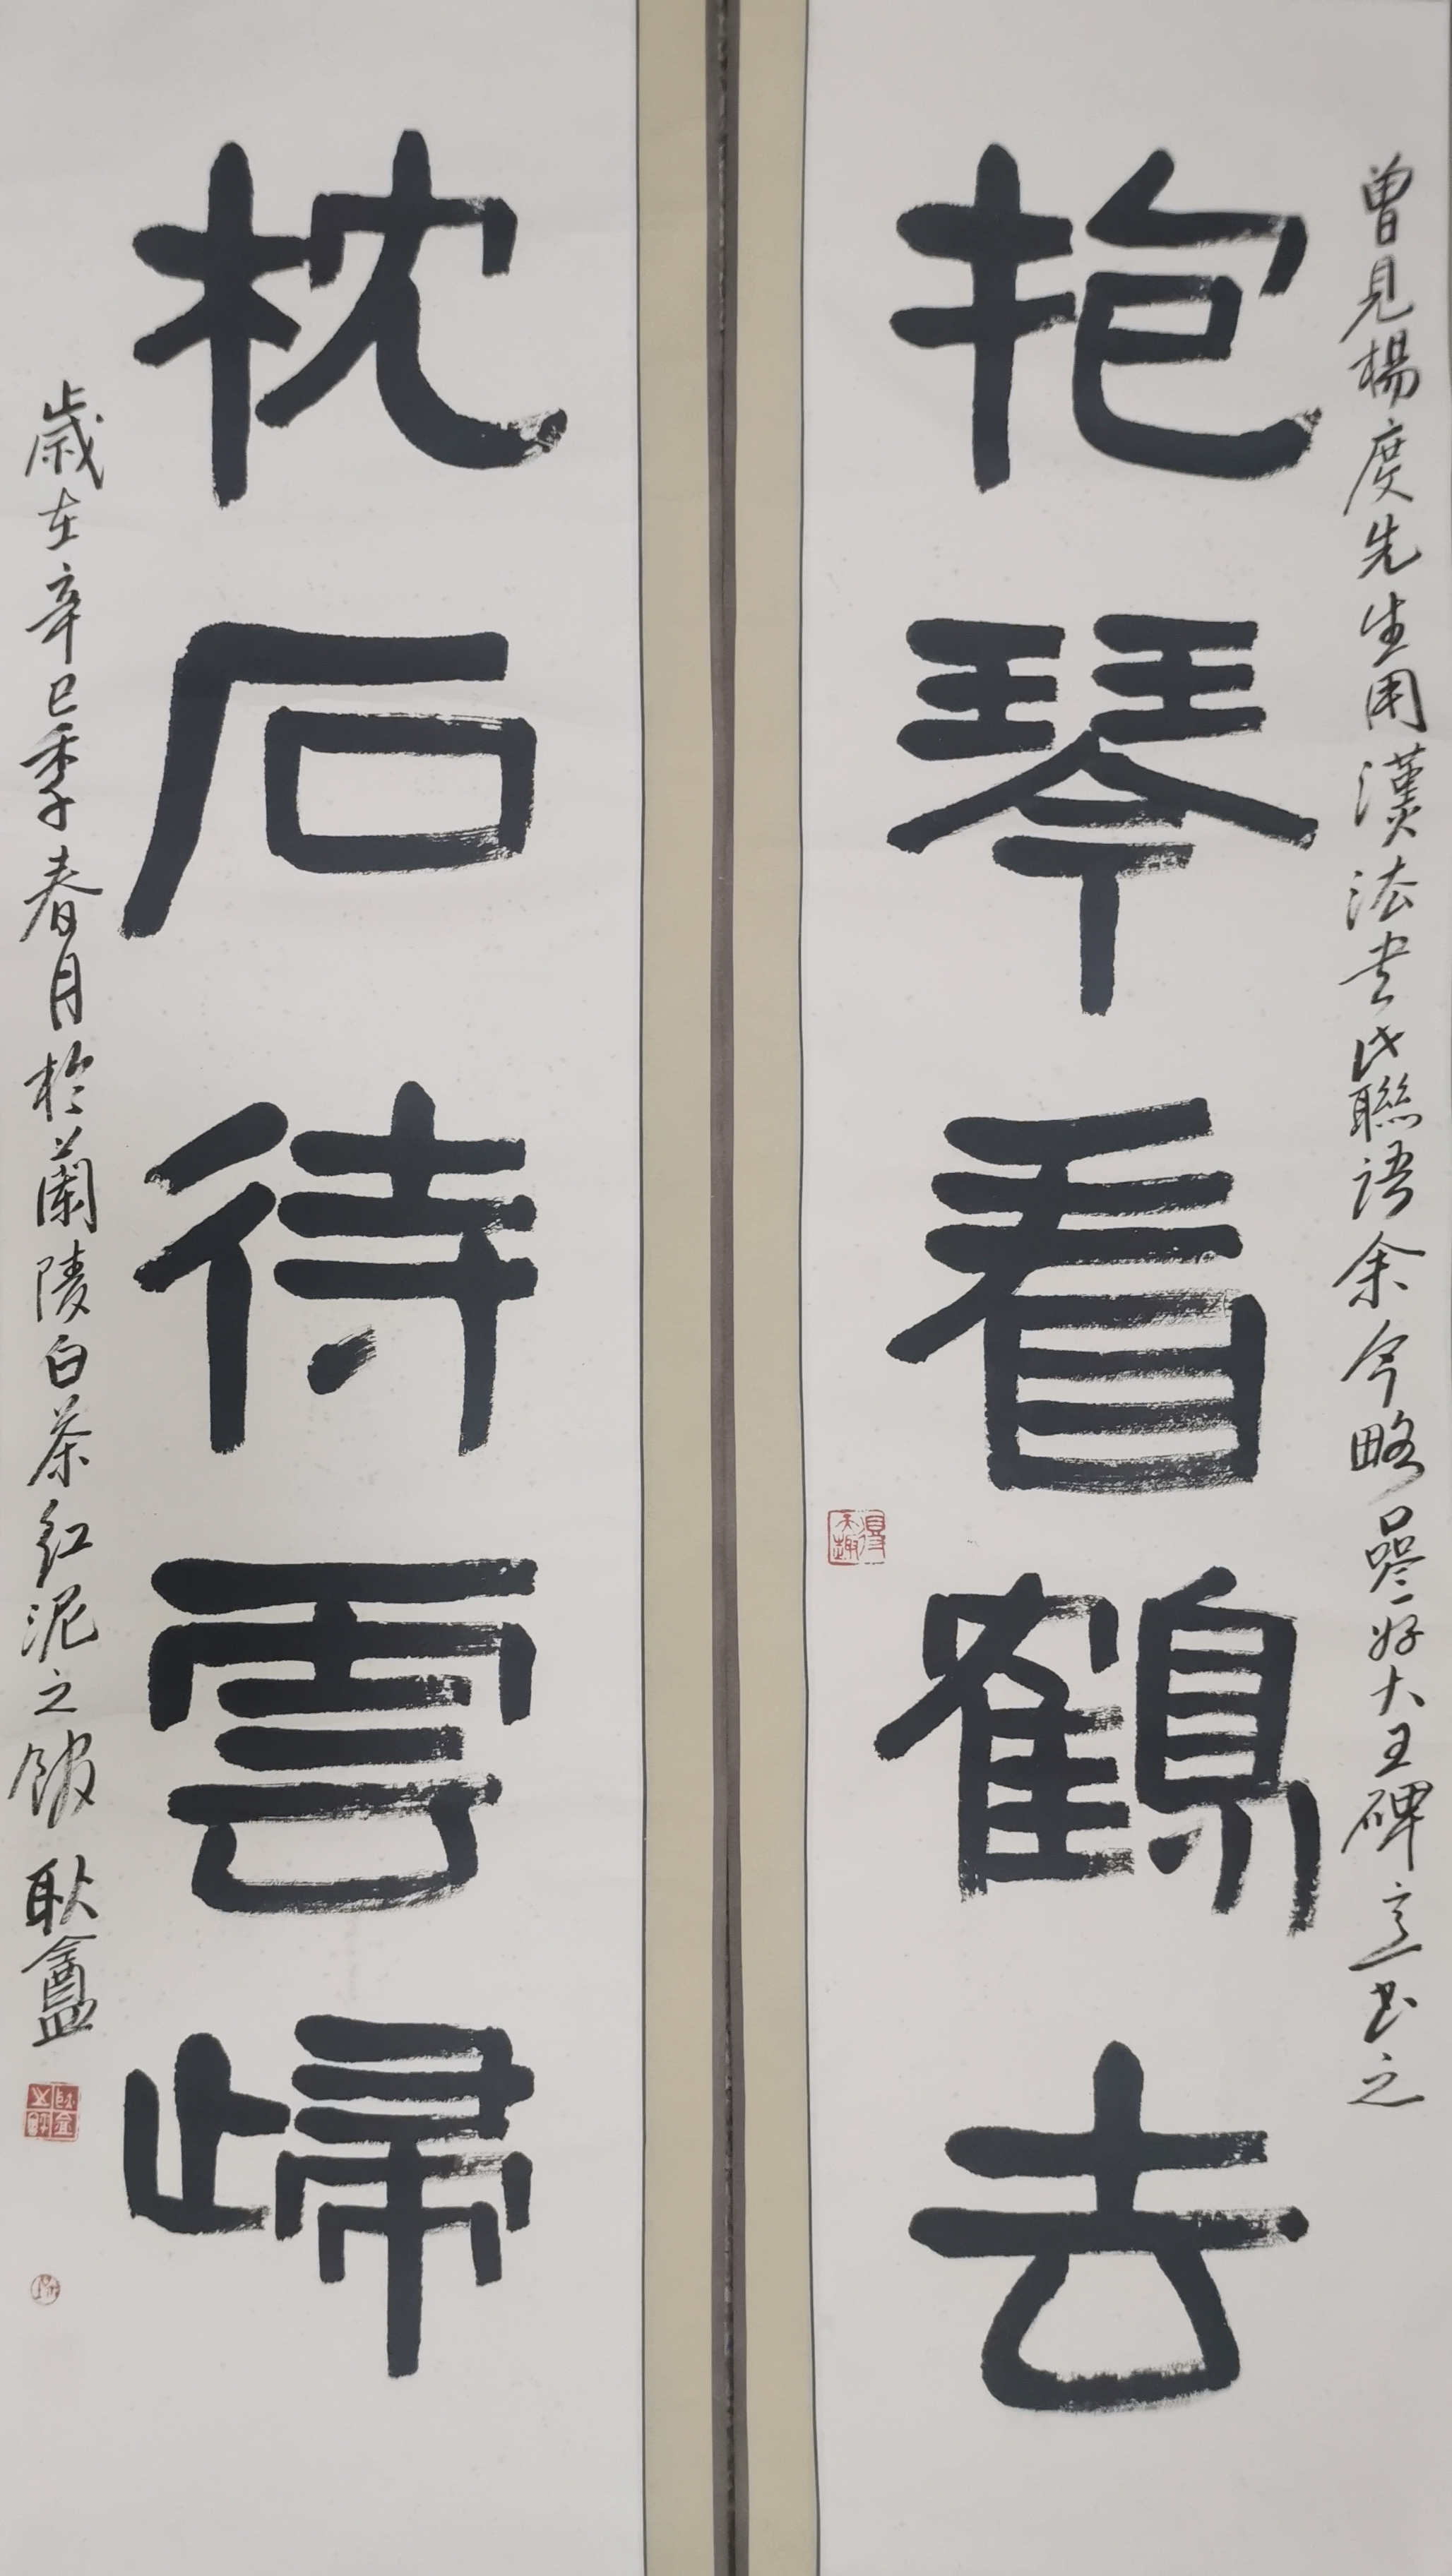 曾見楊度先生用漢法書此聯語余今略參好大王碑意書之
抱琴看鶴去
得天趣
枕石待雲歸
歲在辛巳季春月於蘭陵白茶紅泥之館 耿盦